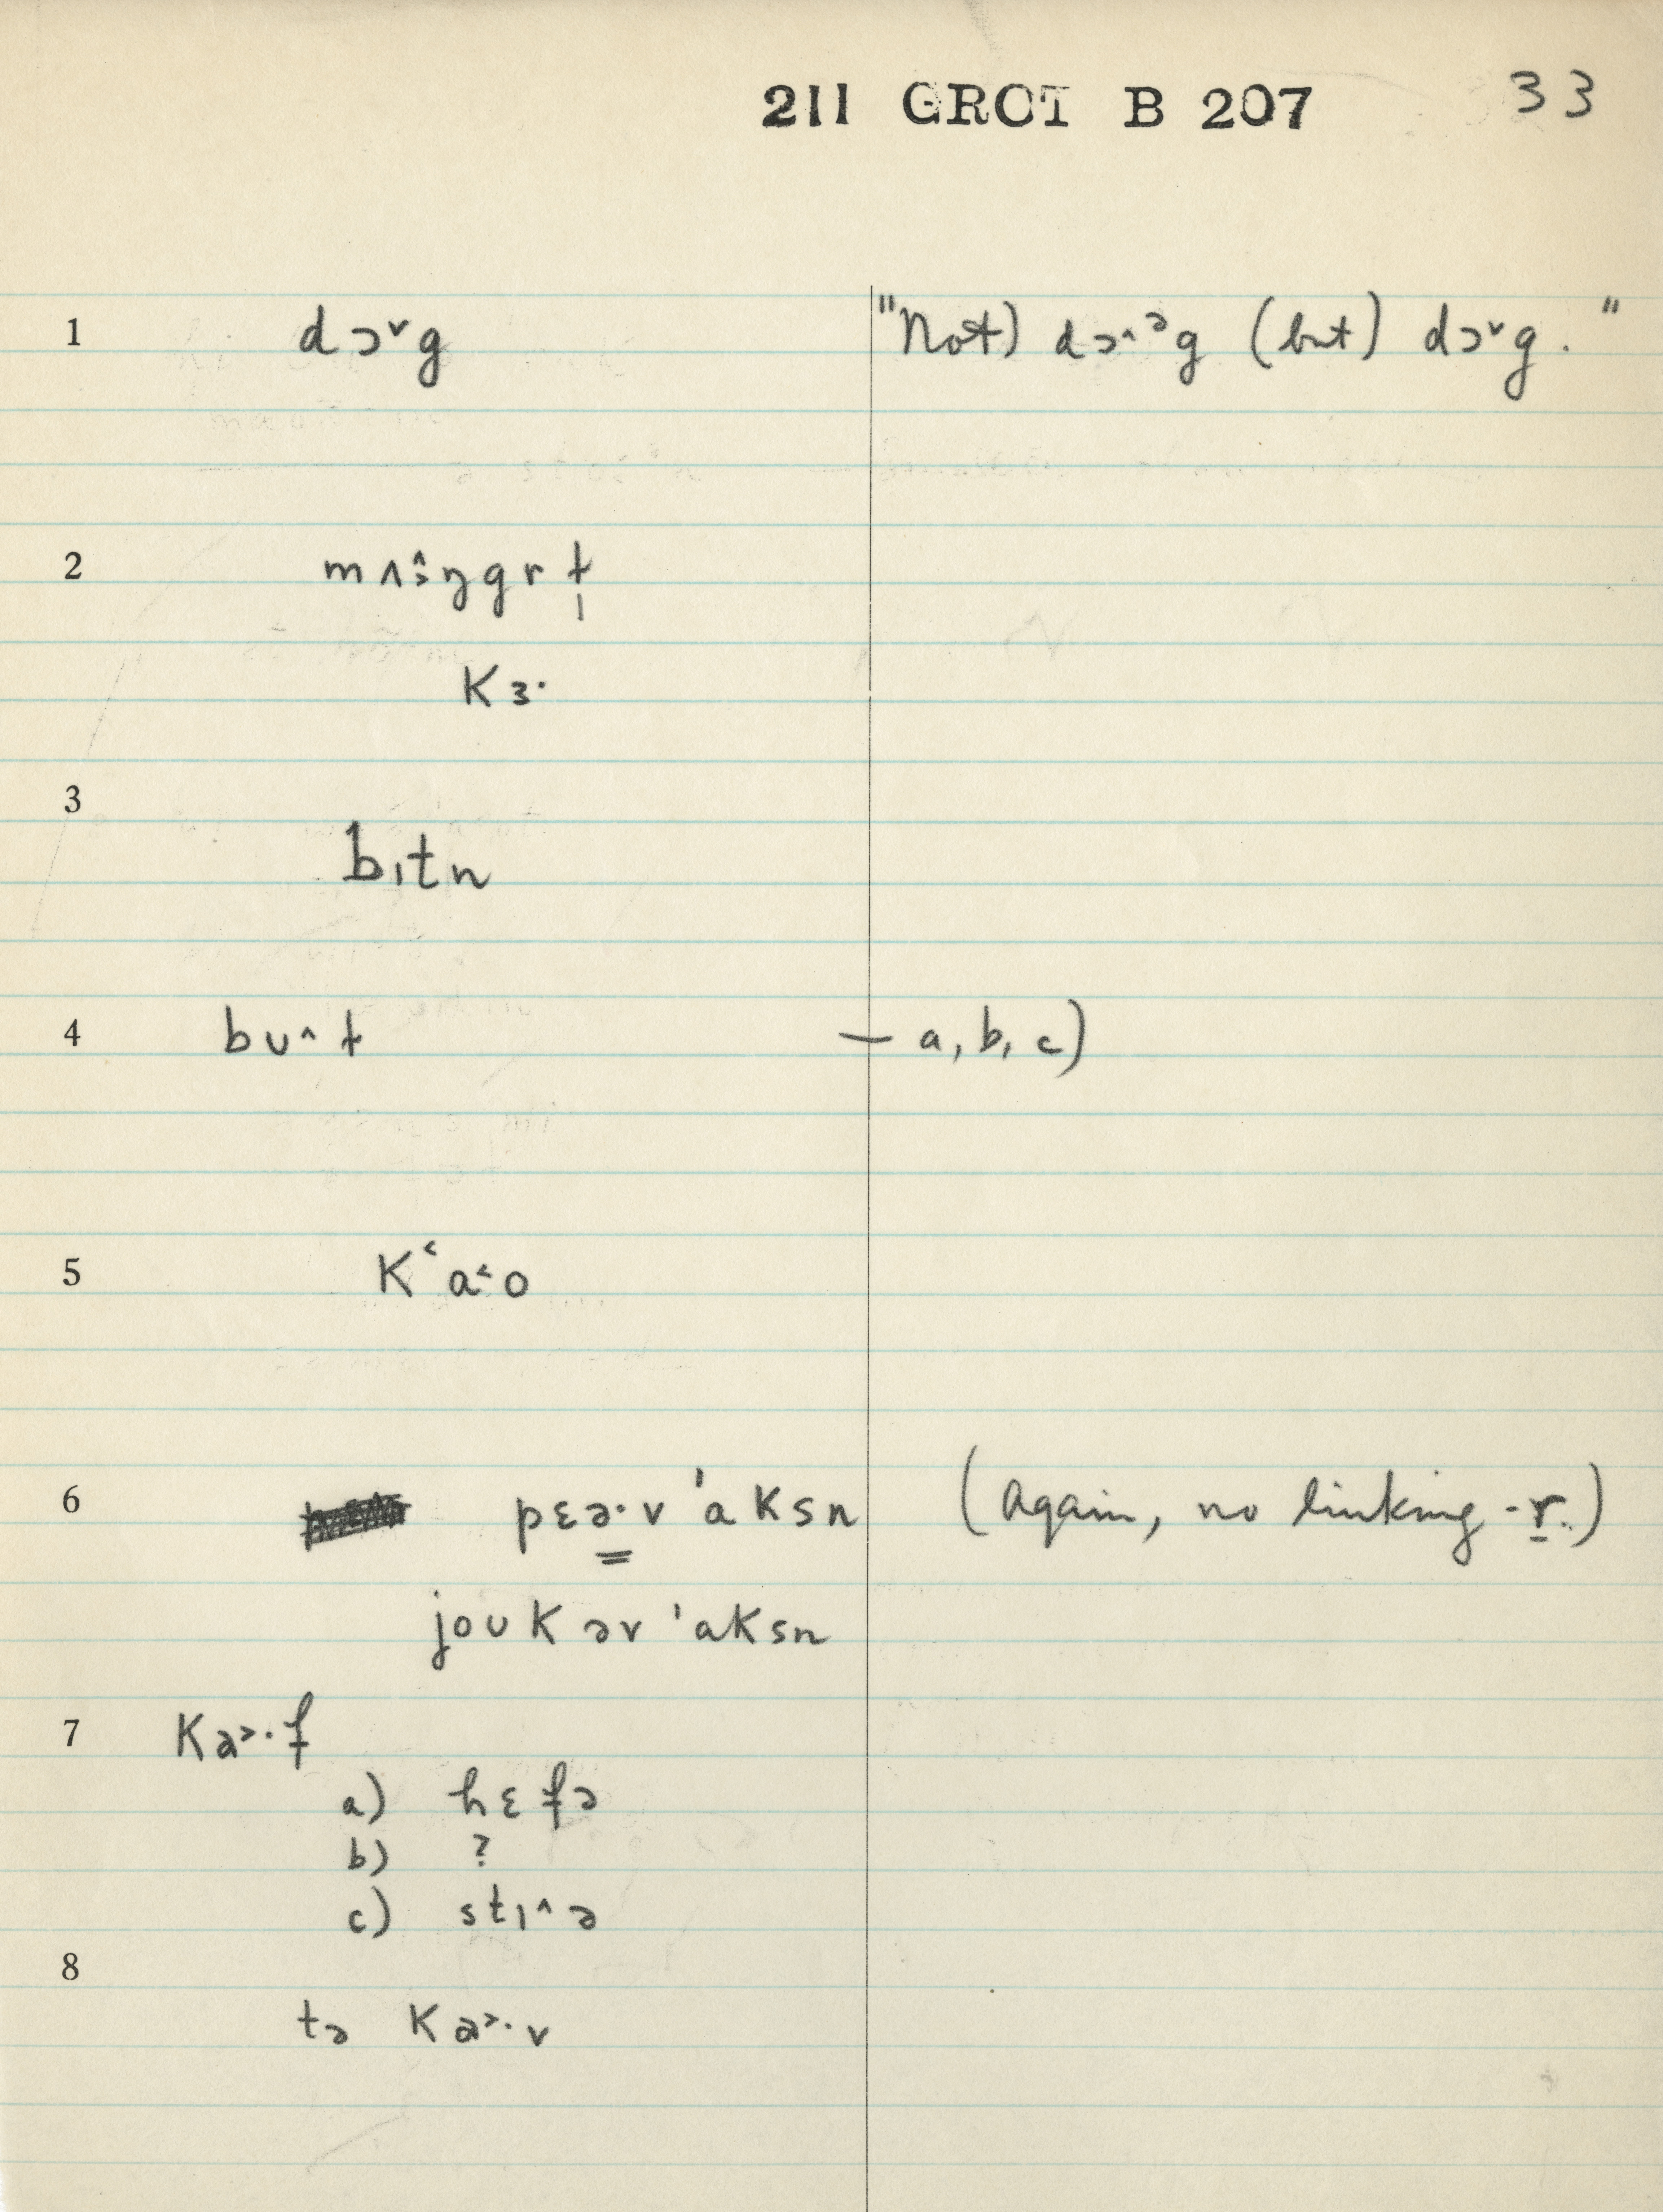 211 GROT B 207 33
1 dɔˇg "Not) dɔ^ɔg (but) dɔˇg."
2 mʌɜ̂ŋgrɫ̩
Kɜ·
3
bɪtn
4 bʊ^t — a, b, c)
5 K‘a˂·o
6 pɛə·v 'aksn (Again, no linking -r.)
joʊk əv 'aksn
7 Ka˃·f
a) hɛfə
b) ?
c) stɪ^ə
8
tə Ka˃·v